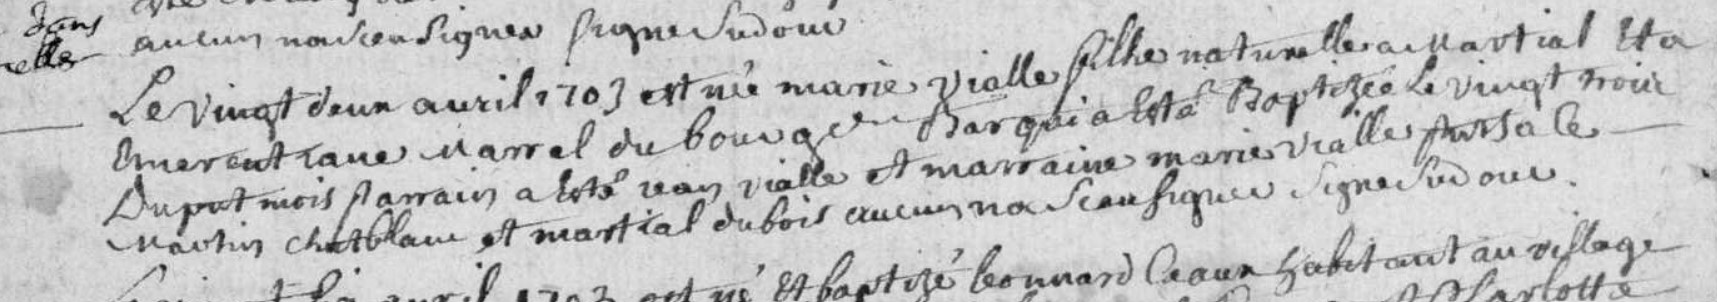 dans
elle
aucun na sceu signer signe Sudour
Le vingt deux auril 1703 est née marie vialle fille naturelle a Martial Et a
Emerentiane Marrel du bourg Bar qui a Esté Baptizée Le vingt trois
Duput mois parrain a esté jean vialle et marraine marie vialle
Martin chatblanc et martial dubois aucun na sceu signer signe Sudour.
auril 1703 est né Et baptizé leonnard habitant au village
Charlotte